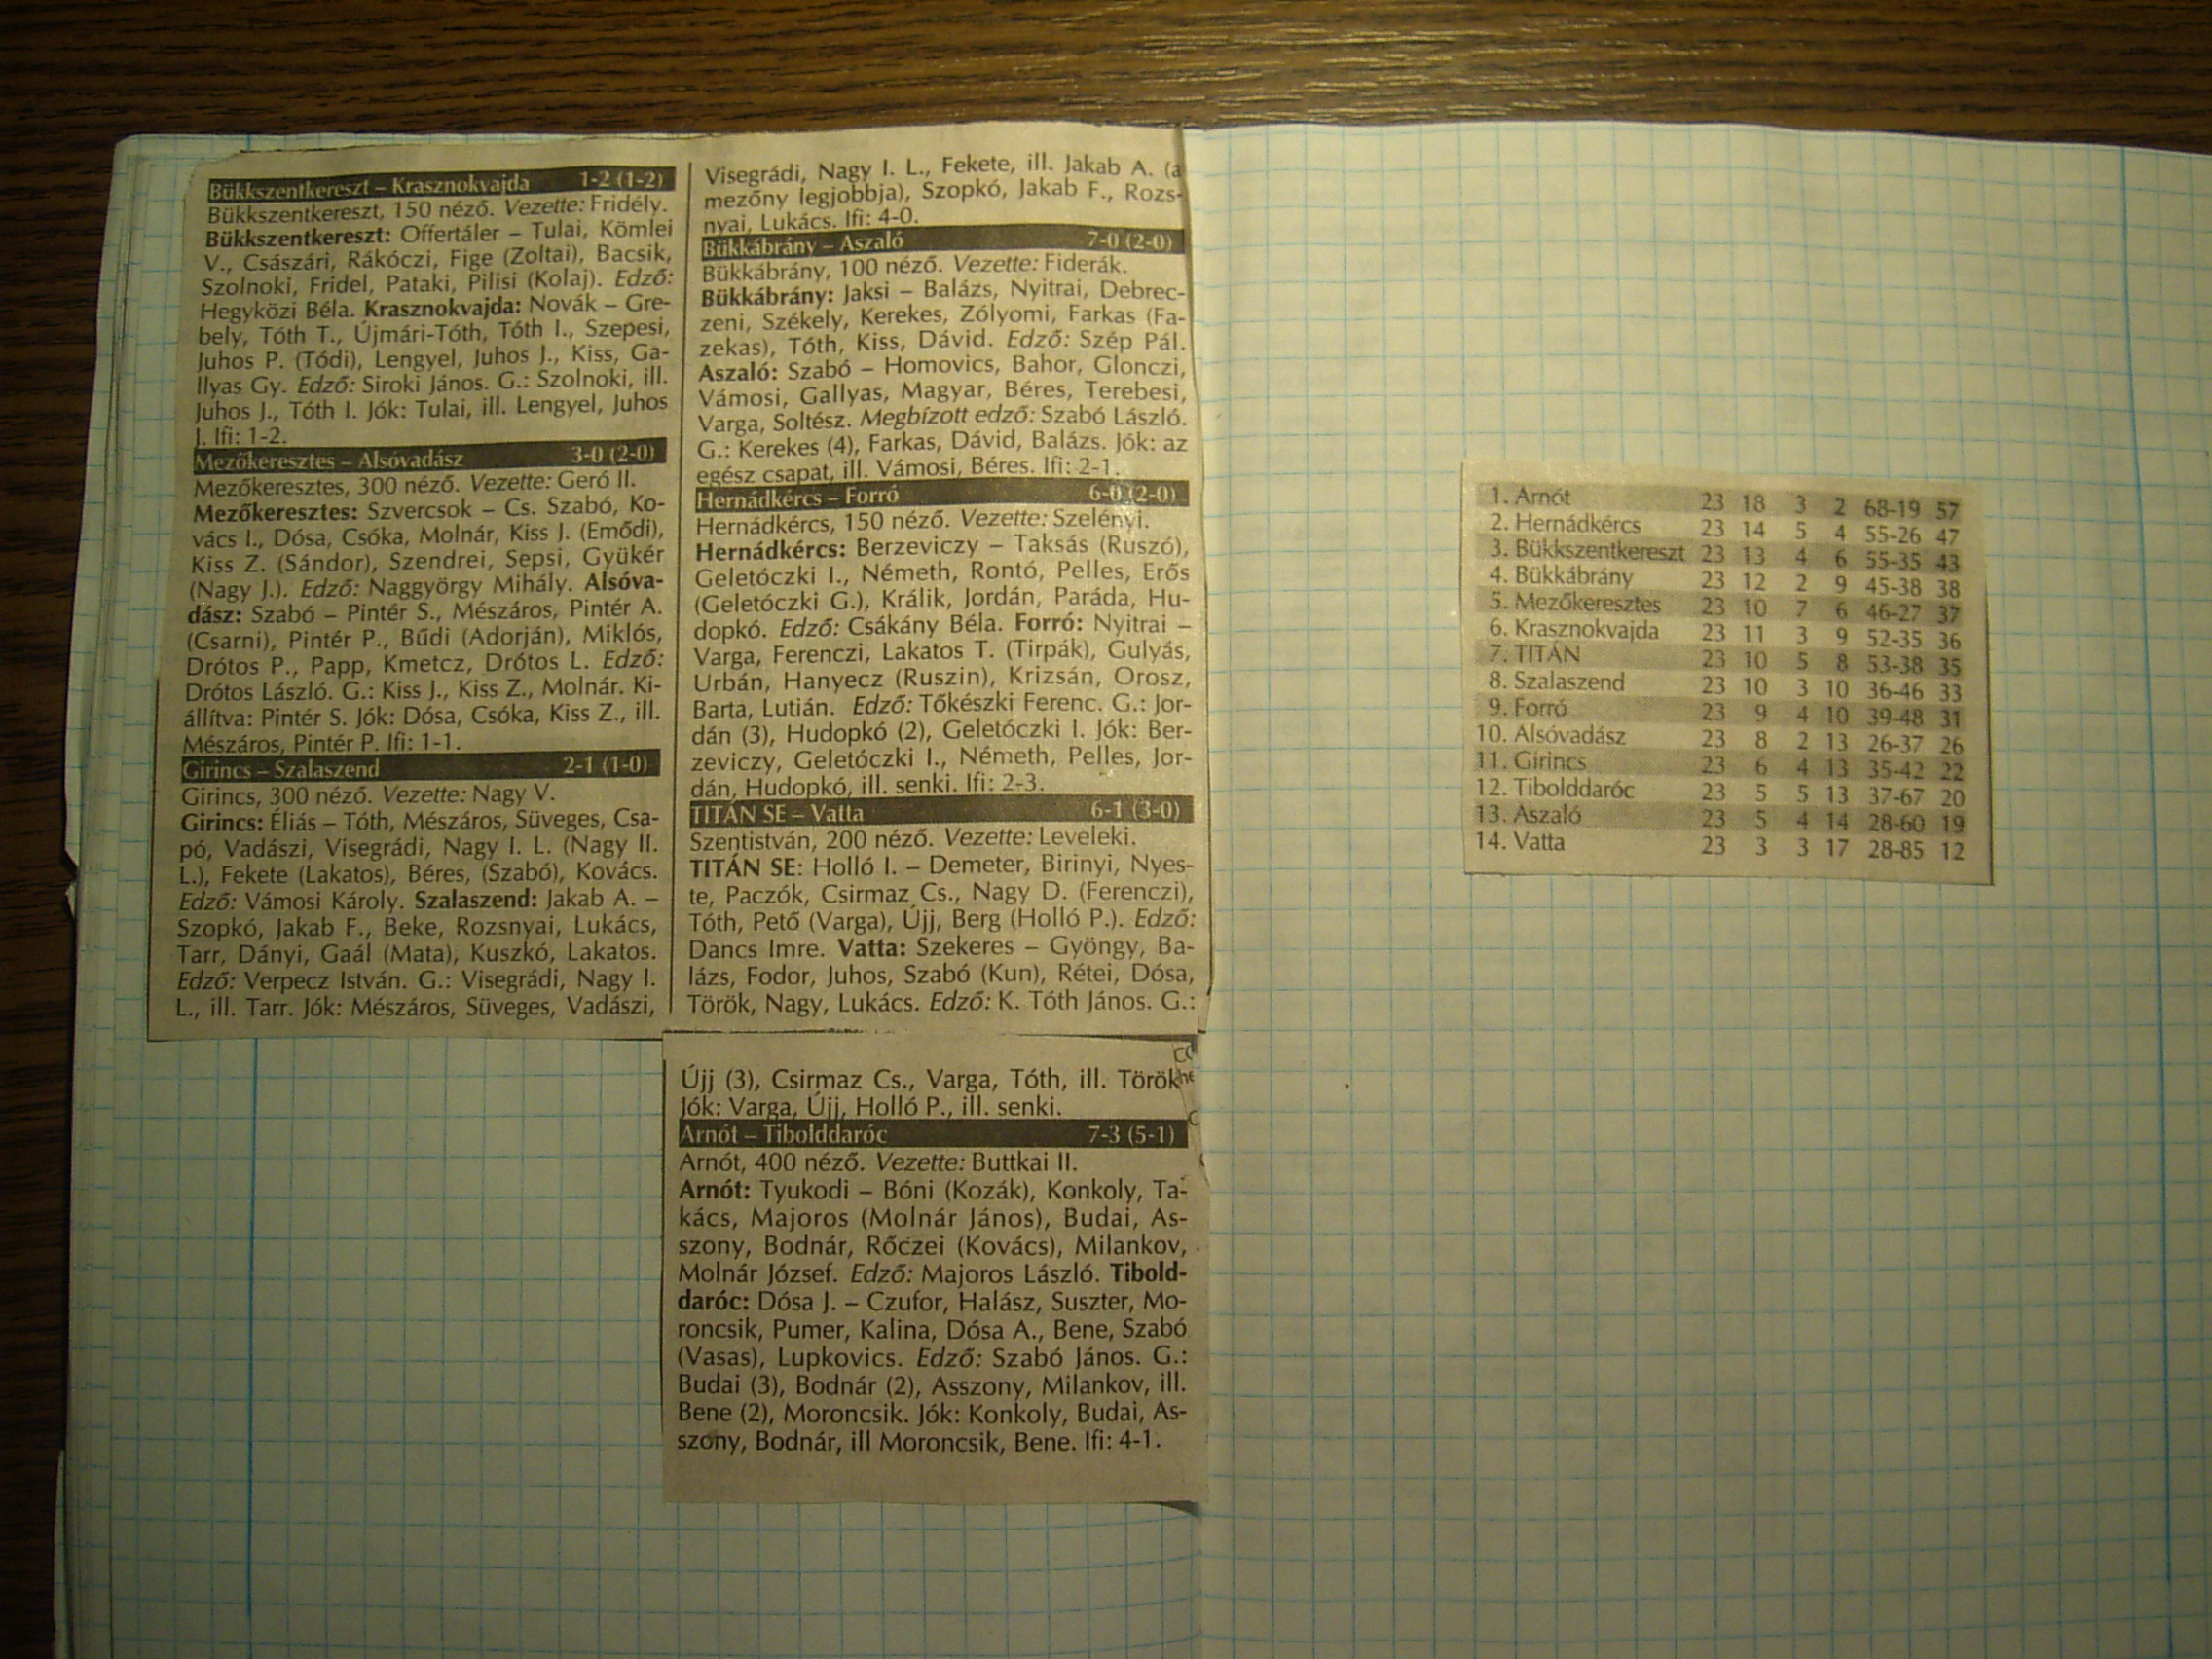 Bükkszentkereszt – Krasznokvajda 1-2 (1-2)
Bükkszentkereszt, 150 néző. Vezette: Fridély.
Bükkszentkereszt: Offertáler – Tulai, Kömlei
V., Császári, Rákóczi, Fige (Zoltai), Bacsik,
Szolnoki, Fridel, Pataki, Pilisi (Kolaj). Edző:
Hegyközi Béla. Krasznokvajda: Novák – Gre-
bely, Tóth T., Újmári-Tóth, Tóth I., Szepesi,
Juhos P. (Tódi), Lengyel, Juhos J., Kiss, Ga-
llyas Gy. Edző: Siroki János. G.: Szolnoki, ill.
Juhos J., Tóth I. Jók: Tulai, ill. Lengyel, Juhos
J. Ifi: 1-2.
Mezőkeresztes – Alsóvadász 3-0 (2-0)
Mezőkeresztes, 300 néző. Vezette: Geró II.
Mezőkeresztes: Szvercsok – Cs. Szabó, Ko-
vács I., Dósa, Csóka, Molnár, Kiss J. (Emődi),
Kiss Z. (Sándor), Szendrei, Sepsi, Gyükér
(Nagy J.). Edző: Naggyörgy Mihály. Alsóva-
dász: Szabó – Pintér S., Mészáros, Pintér A.
(Csarni), Pintér P., Bűdi (Adorján), Miklós,
Drótos P., Papp, Kmetcz, Drótos L. Edző:
Drótos László. G.: Kiss J., Kiss Z., Molnár. Ki-
állítva: Pintér S. Jók: Dósa, Csóka, Kiss Z., ill.
Mészáros, Pintér P. Ifi: 1-1.
Girincs – Szalaszend 2-1 (1-0)
Girincs, 300 néző. Vezette: Nagy V.
Girincs: Éliás – Tóth, Mészáros, Süveges, Csa-
pó, Vadászi, Visegrádi, Nagy I. L. (Nagy II.
L.), Fekete (Lakatos), Béres, (Szabó), Kovács.
Edző: Vámosi Károly. Szalaszend: Jakab A. –
Szopkó, Jakab F., Beke, Rozsnyai, Lukács,
Tarr, Dányi, Gaál (Mata), Kuszkó, Lakatos.
Edző: Verpecz István. G.: Visegrádi, Nagy I.
L., ill. Tarr. Jók: Mészáros, Süveges, Vadászi,
Visegrádi, Nagy I. L., Fekete, ill. Jakab A. (a
mezőny legjobbja), Szopkó, Jakab F., Rozs-
nyai, Lukács. Ifi: 4-0.
Bükkábrány – Aszaló 7-0 (2-0)
Bükkábrány, 100 néző. Vezette: Fiderák.
Bükkábrány: Jaksi – Balázs, Nyitrai, Debrec-
zeni, Székely, Kerekes, Zólyomi, Farkas (Fa-
zekas), Tóth, Kiss, Dávid. Edző: Szép Pál.
Aszaló: Szabó – Homovics, Bahor, Glonczi,
Vámosi, Gallyas, Magyar, Béres, Terebesi,
Varga, Soltész. Megbízott edző: Szabó László.
G.: Kerekes (4), Farkas, Dávid, Balázs. Jók: az
egész csapat, ill. Vámosi, Béres. Ifi: 2-1.
Hernádkércs – Forró 6-0 (2-0)
Hernádkércs, 150 néző. Vezette: Szelényi.
Hernádkércs: Berzeviczy – Taksás (Ruszó),
Geletóczki I., Németh, Rontó, Pelles, Erős
(Geletóczki G.), Králik, Jordán, Paráda, Hu-
dopkó. Edző: Csákány Béla. Forró: Nyitrai –
Varga, Ferenczi, Lakatos T. (Tirpák), Gulyás,
Urbán, Hanyecz (Ruszin), Krizsán, Orosz,
Barta, Lutián. Edző: Tőkészki Ferenc. G.: Jor-
dán (3), Hudopkó (2), Geletóczki I. Jók: Ber-
zeviczy, Geletóczki I., Németh, Pelles, Jor-
dán, Hudopkó, ill. senki. Ifi: 2-3.
TITÁN SE – Vatta 6-1 (3-0)
Szentistván, 200 néző. Vezette: Leveleki.
TITÁN SE: Holló I. – Demeter, Birinyi, Nyes-
te, Paczók, Csirmaz Cs., Nagy D. (Ferenczi),
Tóth, Pető (Varga), Újj, Berg (Holló P.). Edző:
Dancs Imre. Vatta: Szekeres – Gyöngy, Ba-
lázs, Fodor, Juhos, Szabó (Kun), Rétei, Dósa,
Török, Nagy, Lukács. Edző: K. Tóth János. G.:
Újj (3), Csirmaz Cs., Varga, Tóth, ill. Török
Jók: Varga, Újj, Holló P., ill. senki.
Arnót – Tibolddaróc 7-3 (5-1)
Arnót, 400 néző. Vezette: Buttkai II.
Arnót: Tyukodi – Bóni (Kozák), Konkoly, Ta-
kács, Majoros (Molnár János), Budai, As-
szony, Bodnár, Rőczei (Kovács), Milankov,
Molnár József. Edző: Majoros László. Tibold-
daróc: Dósa J. – Czufor, Halász, Suszter, Mo-
roncsik, Pumer, Kalina, Dósa A., Bene, Szabó
(Vasas), Lupkovics. Edző: Szabó János. G.:
Budai (3), Bodnár (2), Asszony, Milankov, ill.
Bene (2), Moroncsik. Jók: Konkoly, Budai, As-
szony, Bodnár, ill Moroncsik, Bene. Ifi: 4-1.
1. Arnót 23 18 3 2 68-19 57
2. Hernádkércs 23 14 5 4 55-26 47
3. Bükkszentkereszt 23 13 4 6 55-35 43
4. Bükkábrány 23 12 2 9 45-38 38
5. Mezőkeresztes 23 10 7 6 46-27 37
6. Krasznokvajda 23 11 3 9 52-35 36
7. TITÁN 23 10 5 8 53-38 35
8. Szalaszend 23 10 3 10 36-46 33
9. Forró 23 9 4 10 39-48 31
10. Alsóvadász 23 8 2 13 26-37 26
11. Girincs 23 6 4 13 35-42 22
12. Tibolddaróc 23 5 5 13 37-67 20
13. Aszaló 23 5 4 14 28-60 19
14. Vatta 23 3 3 17 28-85 12